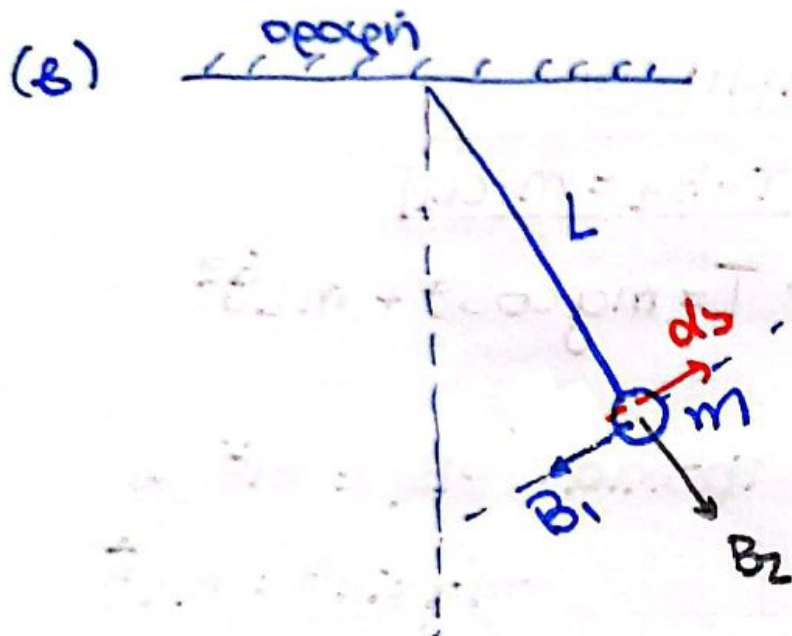 οροφή
(β)
L
ds
m
B₁
B₂